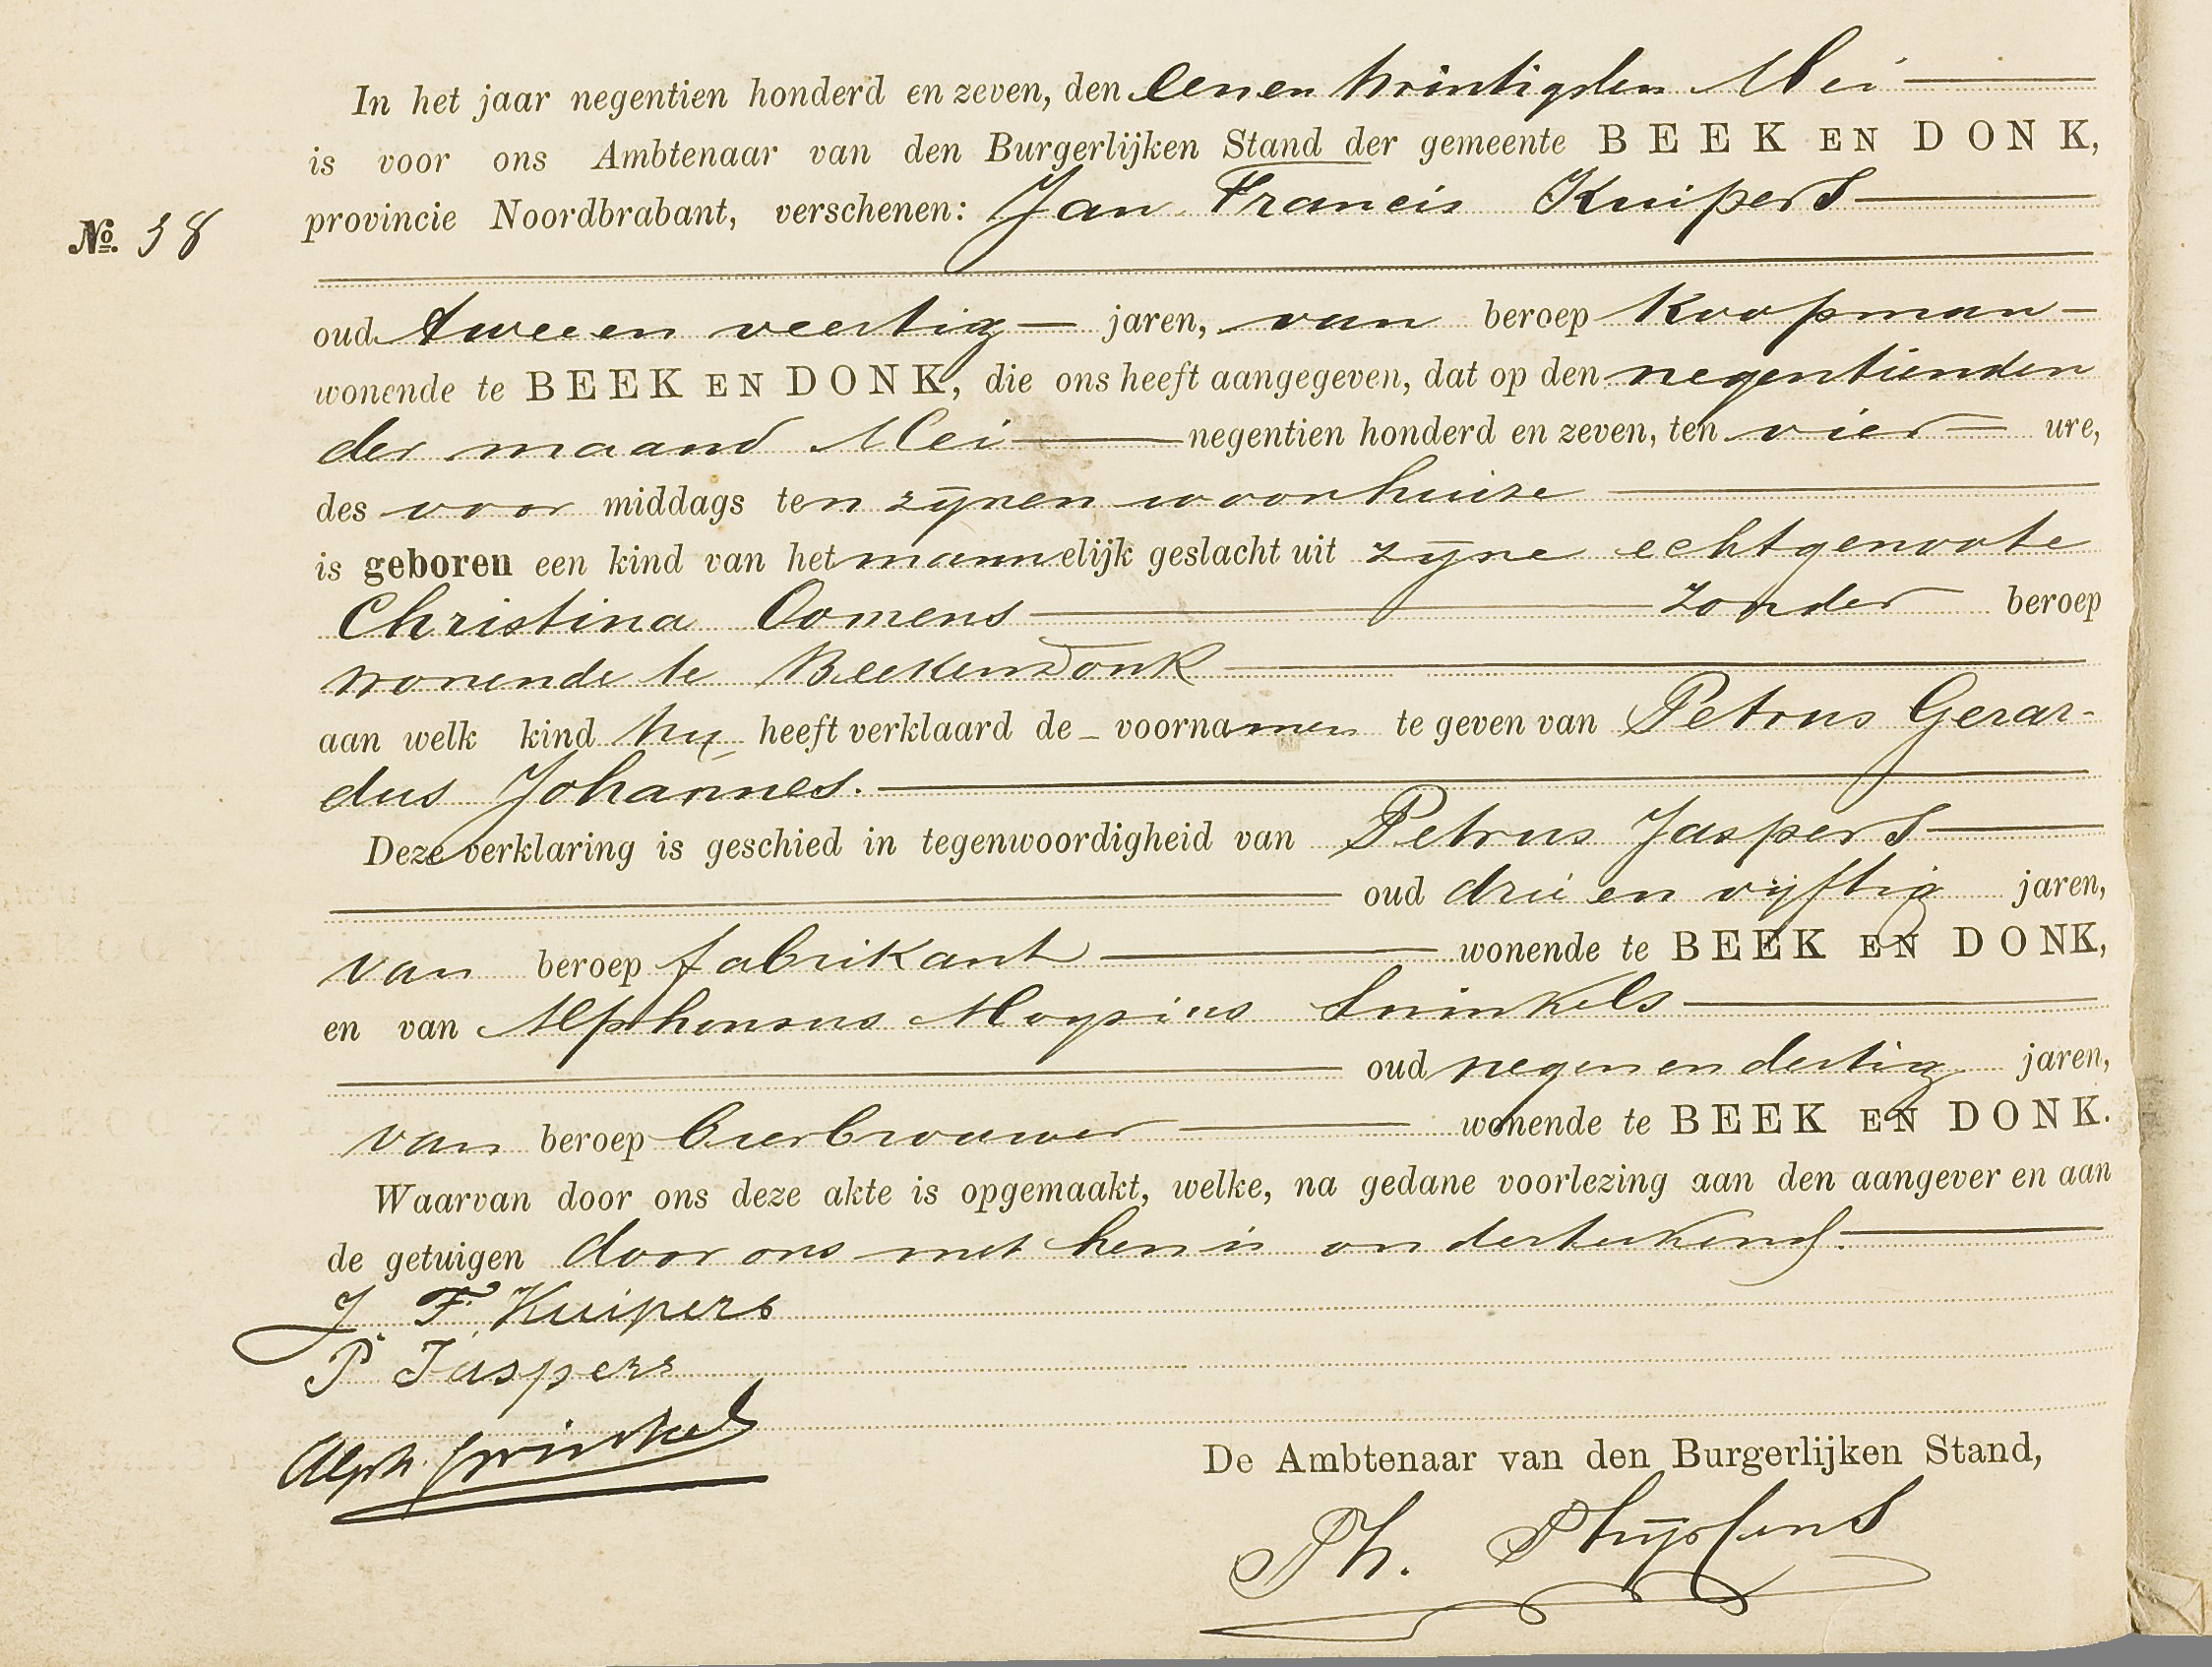 In het jaar negentien honderd en zeven, den eenen twintigsten Mei
is voor ons Ambtenaar van den Burgerlijken Stand der gemeente BEEK EN DONK,
No. 38 provincie Noordbrabant, verschenen: Jan Francis Kuipers
oud tweeen veertig jaren, van beroep Koopman
wonende te BEEK EN DONK, die ons heeft aangegeven, dat op den negentienden
der maand Mei negentien honderd en zeven, ten vier ure,
des voor middags ten zijnen woonhuize
is geboren een kind van het mannelijk geslacht uit zijne echtgenoote
Christina Oomens zonder beroep
wonende te Beekendonk
aan welk kind hij heeft verklaard de voornamen te geven van Petrus Gerar-
dus Johannes.
Deze verklaring is geschied in tegenwoordigheid van Petrus Jaspers
oud drie en vijftig jaren,
van beroep fabrikant wonende te BEEK EN DONK,
en van Alphonsus Aloysius Swinkels
oud negen en dertig jaren,
van beroep bierbrouwer wonende te BEEK EN DONK.
Waarvan door ons deze akte is opgemaakt, welke, na gedane voorlezing aan den aangever en aan
de getuigen door ons met hen is onderteekend.
J F Kuipers
P. Jaspers
Alph. Swinkels
De Ambtenaar van den Burgerlijken Stand,
Th.